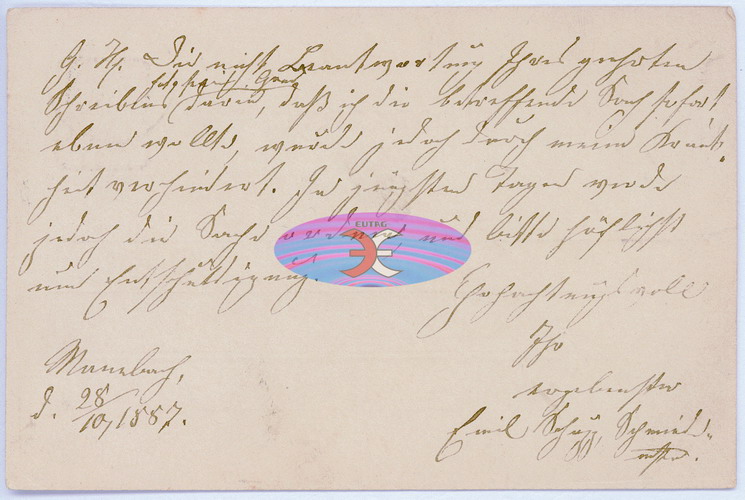 G. H. Die nicht Beantwortung Ihres geehrten
Schreibens darin, daß ich die betreffende Sach sofort
eben wollte, wurde jedoch durch meine Krank-
heit verhindert. In jüngsten Tagen werde
jedoch die Sache ordnen, und bitte höflichst
um Entschuldigung.
EUTAG
Hochachtungsvoll
Ihr
ergebenster
Manebach,
d. 28/10, 1887.
Emil Schmied-
mstr.